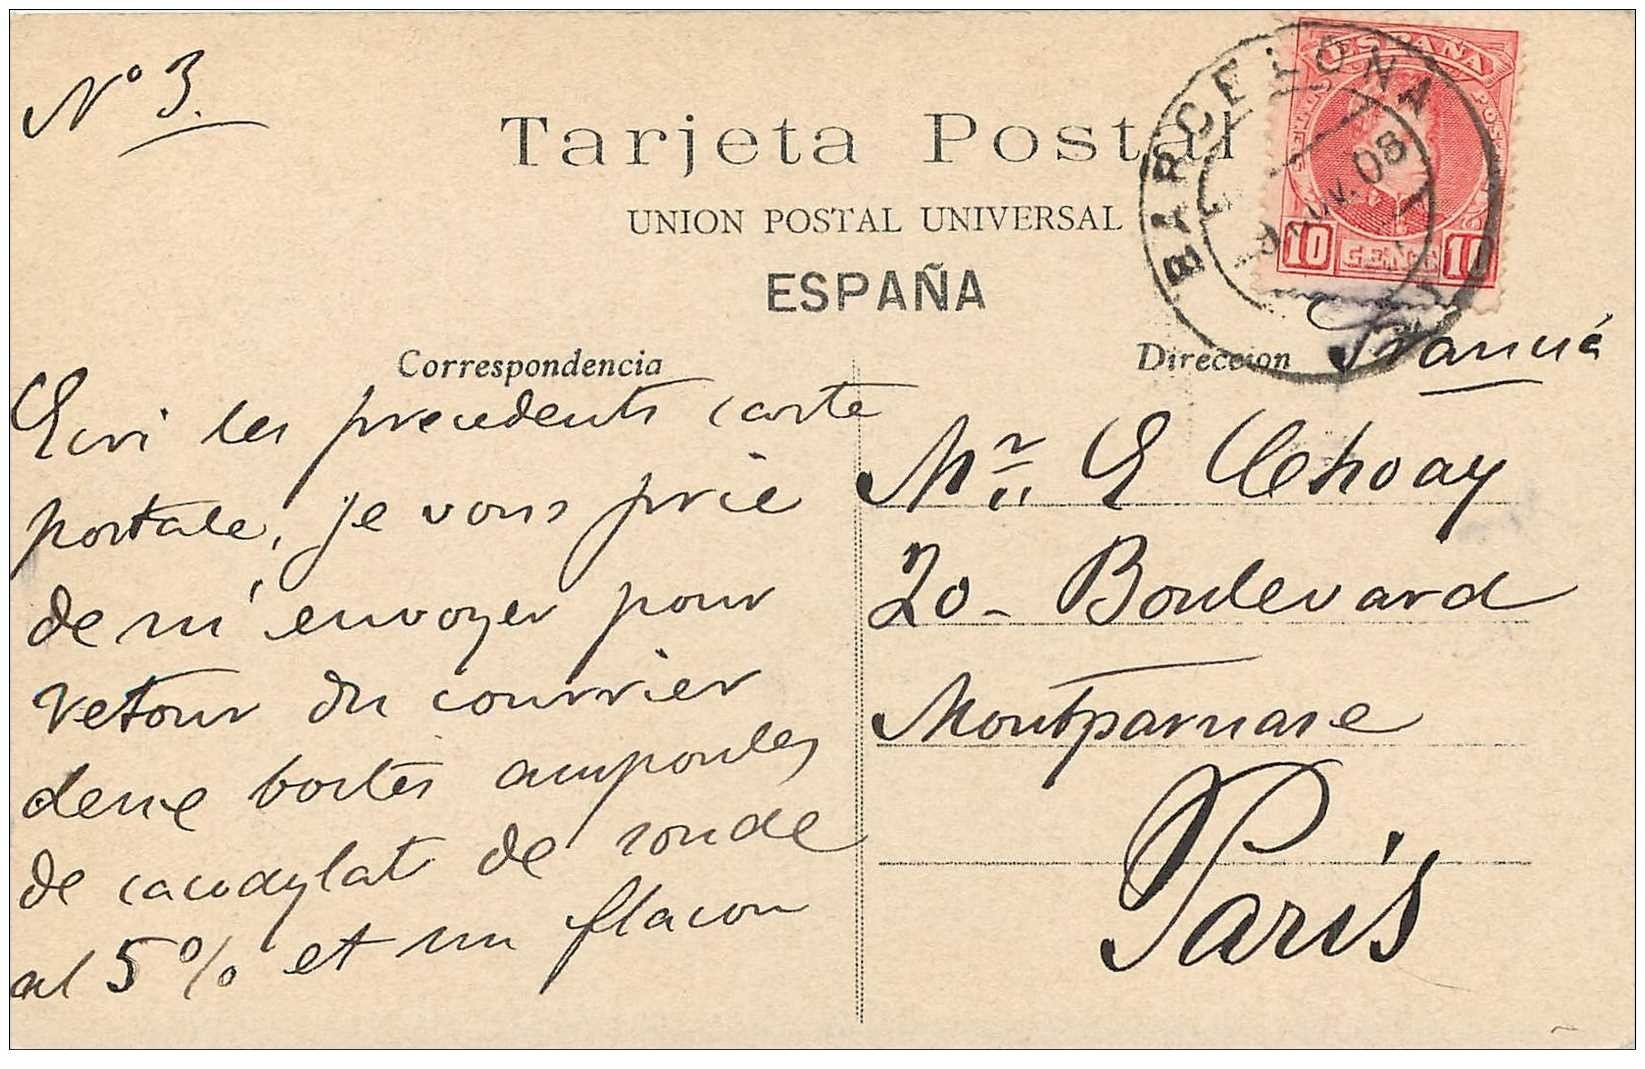 Nº 3.
Tarjeta Postal
UNION POSTAL UNIVERSAL
ESPAÑA
BARCELONA
08
ESPAÑA
10 CENTS 10
Correspondencia
Ecivi les precedents carte
portale, je vous prie
de m'envoyer pour
retour du courrier
deux boites ampoules
de cacodylat de soude
al 5% et un flacon
Direccion
Francia
Mr. E Choay
20 - Boulevard
Montparnase
Paris